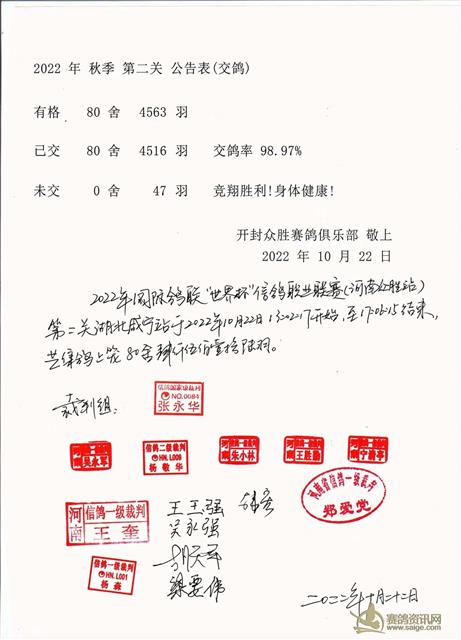 2022 年 秋季 第二关 公告表(交鸽)
有格 80 舍 4563 羽
已交 80 舍 4516 羽 交鸽率 98.97%
未交 0 舍 47 羽 竞翔胜利!身体健康!
开封众胜赛鸽俱乐部 敬上
2022 年 10 月 22 日
2022年国际鸽联"世界杯"信鸽职业联赛(河南众胜站)
第二关湖北咸宁站于2022年10月22日13:02:17开始,至17:06:15结束,
共缉鸽上笼80舍肆仟伍佰壹拾陆羽。
裁判组:
信鸽国家级裁判
NO.0084
张永华
河南
吴永军
信鸽二级裁判
HN.L009
杨敬华
河南
朱小林
河南
王胜勤
河南
宁清亭
河南省信鸽一级裁判
郑爱党
河南
信鸽一级裁判
王奎
王玉强
吴永强
信鸽一级裁判
HN.L001
杨森
二〇二二年十月二十二日
赛鸽资讯网
www.saige.com